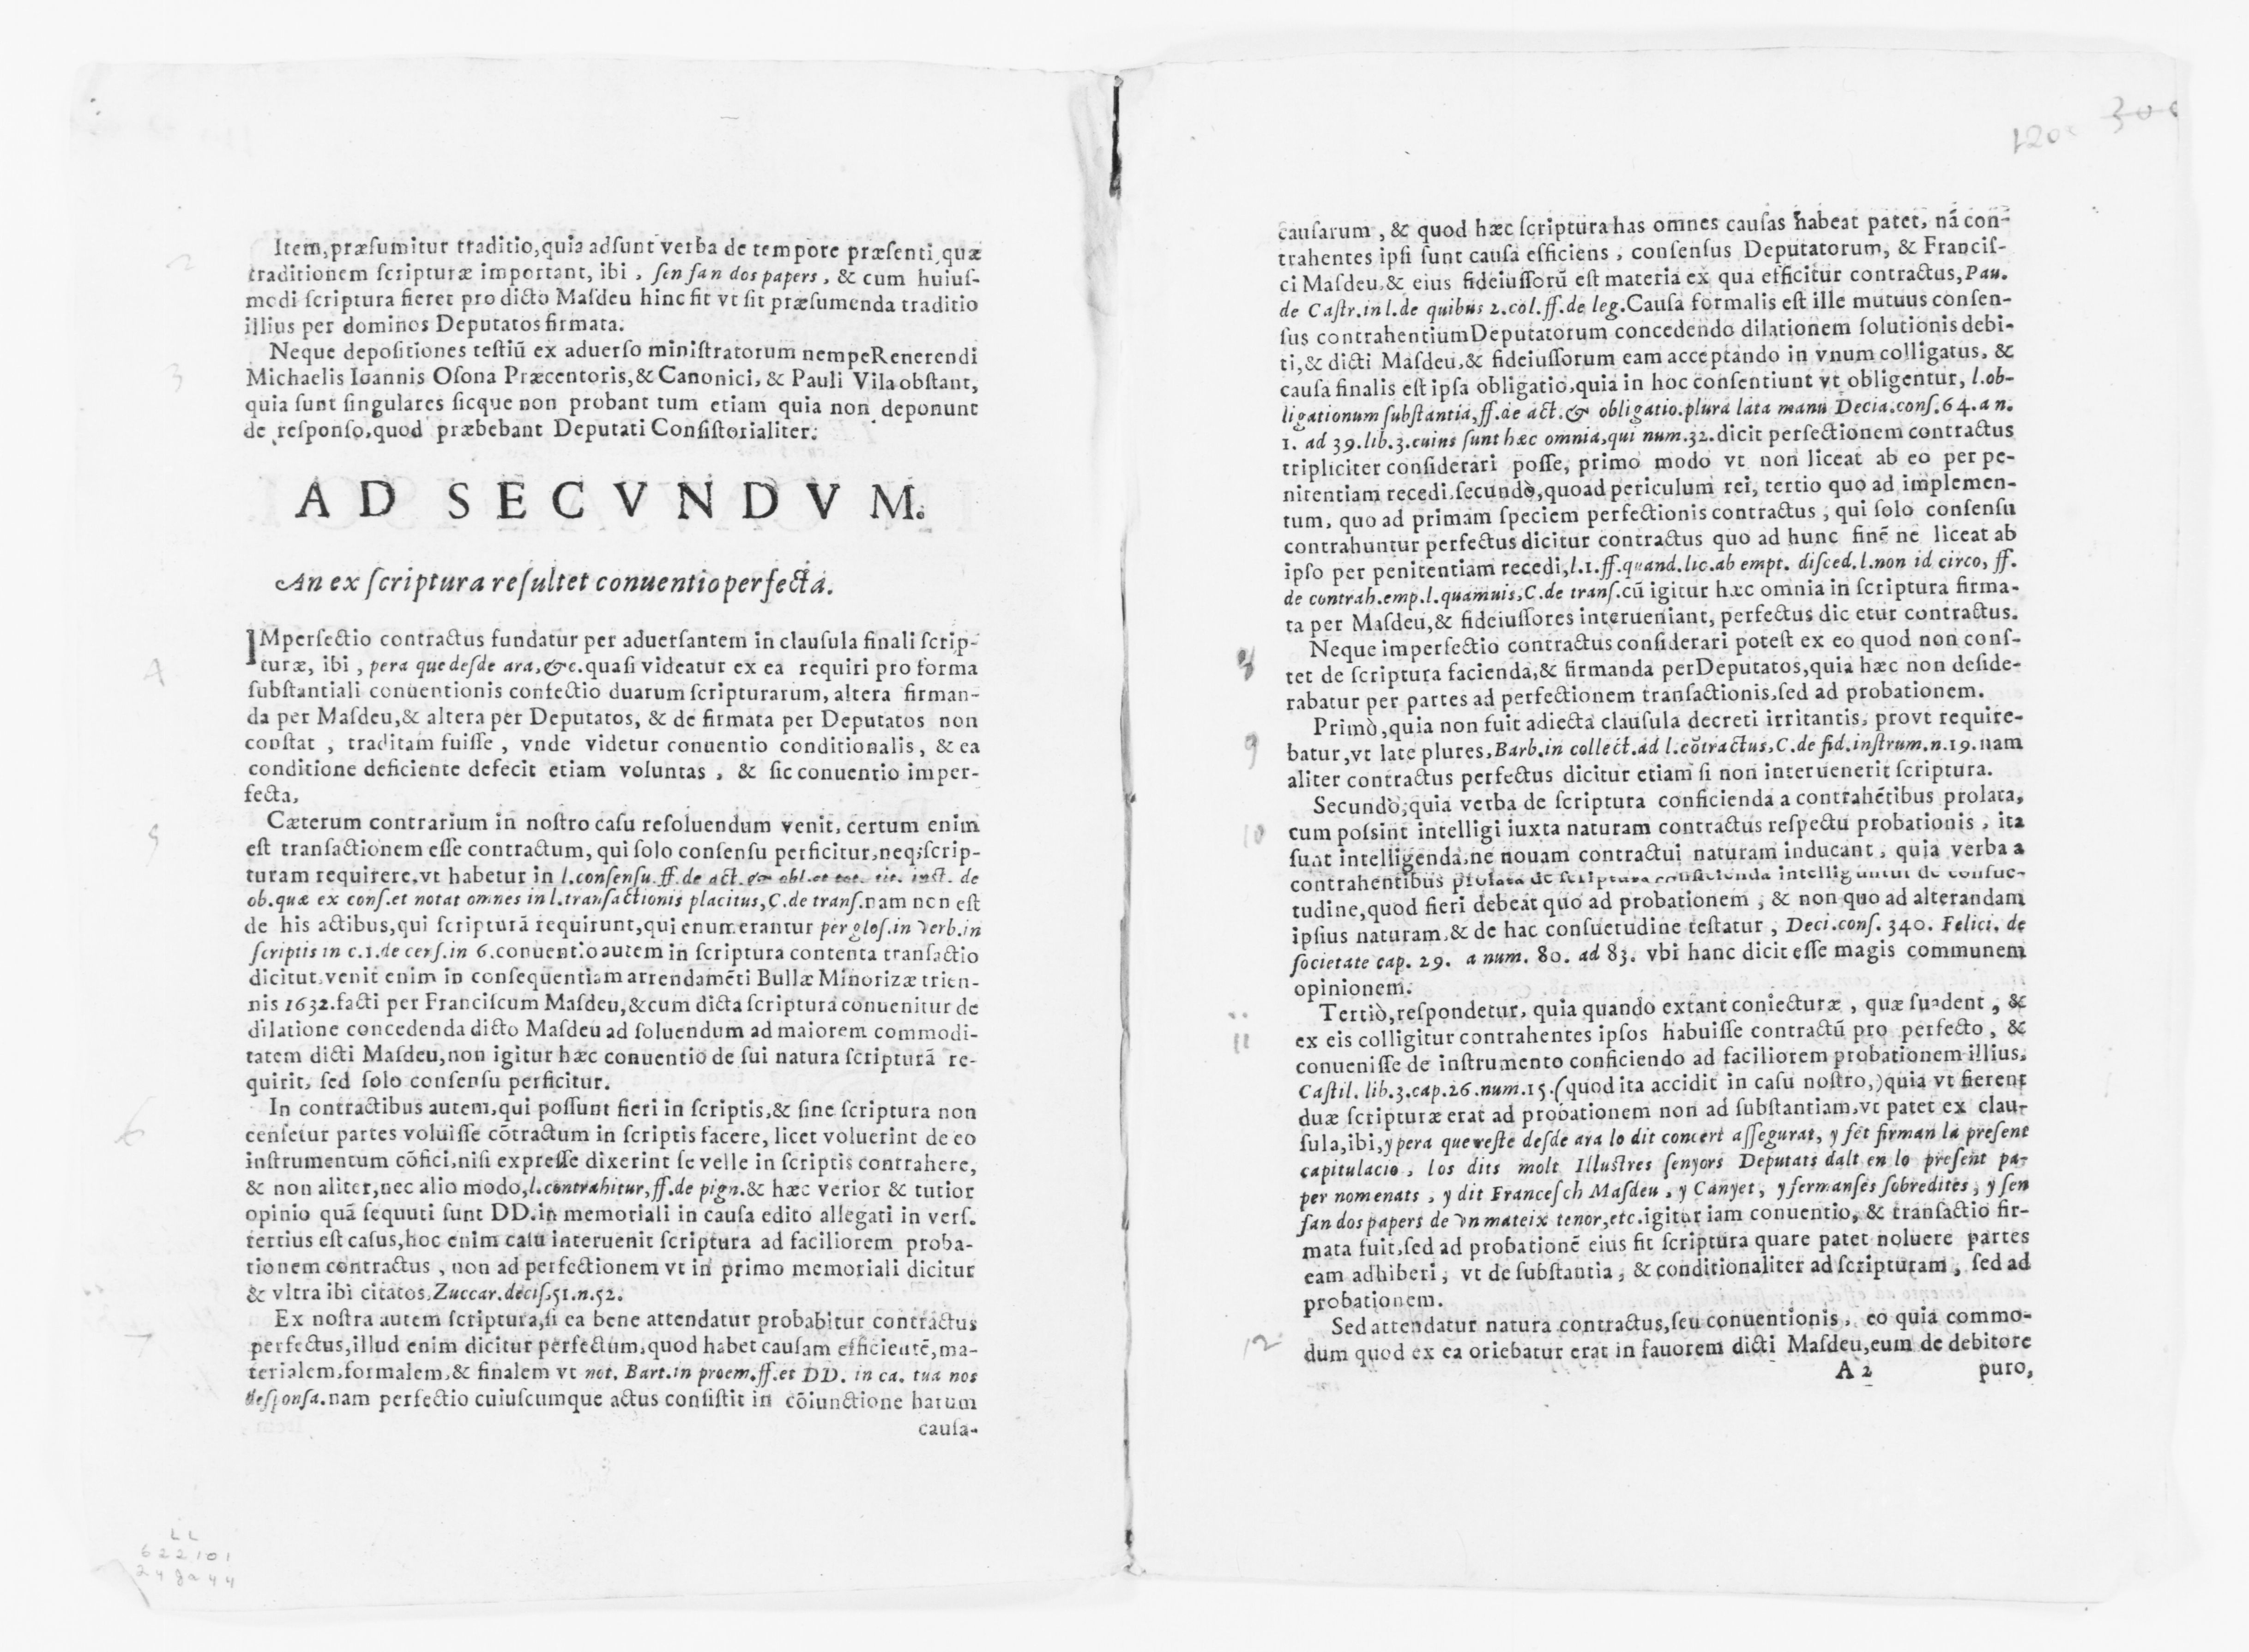 Item, præsumitur traditio, quia adsunt verba de tempore præsenti, quæ
traditionem scripturæ important, ibi, sen san dos papers, & cum huius-
modi scriptura fieret pro dicto Masdeu hinc fit vt sit præsumenda traditio
illius per dominos Deputatos firmata.
Neque depositiones testiũ ex aduerso ministratorum nempe Renerendi
Michaelis Ioannis Osona Præcentoris, & Canonici, & Pauli Vila obstant,
quia sunt singulares sicque non probant tum etiam quia non deponunt
de responso, quod præbebant Deputati Consistorialiter.
AD SECVNDVM.
An ex scriptura resultet conuentio perfecta.
IMperfectio contractus fundatur per aduersantem in clausula finali scrip-
turæ, ibi, pera que desde ara, &c. quasi videatur ex ea requiri pro forma
substantiali conuentionis confectio duarum scripturarum, altera firman-
da per Masdeu, & altera per Deputatos, & de firmata per Deputatos non
constat, traditam fuisse, vnde videtur conuentio conditionalis, & ea
conditione deficiente defecit etiam voluntas, & sic conuentio imper-
fecta,
Cæterum contrarium in nostro casu resoluendum venit, certum enim
est transactionem esse contractum, qui solo consensu perficitur, neq; scrip-
turam requirere, vt habetur in l. consensu. ff. de act. & obl. et tot. tit. inst. de
ob. quæ ex cons. et notat omnes in l. transactionis placitus, C. de trans. nam non est
de his actibus, qui scripturã requirunt, qui enumerantur per glos. in verb. in
scriptis in c. 1. de cens. in 6. conuentio autem in scriptura contenta transactio
dicitut, venit enim in consequentiam arrendamẽti Bullæ Minorizæ trien-
nis 1632. facti per Franciscum Masdeu, & cum dicta scriptura conuenitur de
dilatione concedenda dicto Masdeu ad soluendum ad maiorem commodi-
tatem dicti Masdeu, non igitur hæc conuentio de sui natura scripturã re-
quirit, sed solo consensu perficitur.
In contractibus autem, qui possunt fieri in scriptis, & sine scriptura non
censetur partes voluisse cõtractum in scriptis facere, licet voluerint de eo
instrumentum cõfici, nisi expresse dixerint se velle in scriptis contrahere,
& non aliter, nec alio modo, l. contrahitur, ff. de pign. & hæc verior & tutior
opinio quã sequuti sunt DD. in memoriali in causa edito allegati in vers.
tertius est casus, hoc enim casu interuenit scriptura ad faciliorem proba-
tionem contractus, non ad perfectionem vt in primo memoriali dicitur
& vltra ibi citatos, Zuccar. decis. 51. n. 52.
Ex nostra autem scriptura, si ea bene attendatur probabitur contractus
perfectus, illud enim dicitur perfectum, quod habet causam efficientẽ, ma-
terialem, formalem, & finalem vt not. Bart. in proem. ff. et DD. in ca. tua nos
desponsa. nam perfectio cuiuscumque actus consistit in cõiunctione harum
causa-
causarum, & quod hæc scriptura has omnes causas habeat patet, nã con-
trahentes ipsi sunt causa efficiens, consensus Deputatorum, & Francis-
ci Masdeu, & eius fideiussorũ est materia ex qua efficitur contractus, Pau.
de Castr. in l. de quibus 2. col. ff. de leg. Causa formalis est ille mutuus consen-
sus contrahentium Deputatorum concedendo dilationem solutionis debi-
ti, & dicti Masdeu, & fideiussorum eam acceptando in vnum colligatus, &
causa finalis est ipsa obligatio, quia in hoc consentiunt vt obligentur, l. ob-
ligationum substantia, ff. de act. & obligatio. plura lata manu Decia. cons. 64. a n.
1. ad 39. lib. 3. cuius sunt hæc omnia, qui num. 32. dicit perfectionem contractus
tripliciter considerari posse, primo modo vt non liceat ab eo per pe-
nitentiam recedi, secundò, quoad periculum rei, tertio quo ad implemen-
tum, quo ad primam speciem perfectionis contractus, qui solo consensu
contrahuntur perfectus dicitur contractus quo ad hunc finẽ ne liceat ab
ipso per penitentiam recedi, l. 1. ff. quand. lic. ab empt. disced. l. non id circo, ff.
de contrah. emp. l. quamuis, C. de trans. cũ igitur hæc omnia in scriptura firma-
ta per Masdeu, & fideiussores interueniant, perfectus dic etur contractus.
Neque imperfectio contractus considerari potest ex eo quod non cons-
tet de scriptura facienda, & firmanda per Deputatos, quia hæc non deside-
rabatur per partes ad perfectionem transactionis, sed ad probationem.
Primò, quia non fuit adiecta clausula decreti irritantis, provt require-
batur, vt late plures, Barb. in collect. ad l. cõtractus, C. de fid. instrum. n. 19. nam
aliter contractus perfectus dicitur etiam si non interuenerit scriptura.
Secundò, quia verba de scriptura conficienda a contrahẽtibus prolata,
cum possint intelligi iuxta naturam contractus respectu probationis, ita
sunt intelligenda, ne nouam contractui naturam inducant, quia verba a
contrahentibus prolata de scriptura conficienda intelliguntur de consue-
tudine, quod fieri debeat quo ad probationem, & non quo ad alterandam
ipsius naturam, & de hac consuetudine testatur, Deci. cons. 340. Felici. de
societate cap. 29. a num. 80. ad 83. vbi hanc dicit esse magis communem
opinionem.
Tertiò, respondetur, quia quando extant coniecturæ, quæ suadent, &
ex eis colligitur contrahentes ipsos habuisse contractũ pro perfecto, &
conuenisse de instrumento conficiendo ad faciliorem probationem illius,
Castil. lib. 3. cap. 26. num. 15. (quod ita accidit in casu nostro,) quia vt fierent
duæ scripturæ erat ad probationem non ad substantiam, vt patet ex clau-
sula, ibi, y pera que reste desde ara lo dit concert assegurat, y fet firman la present
capitulacio, los dits molt Illustres senyors Deputats dalt en lo present pa-
per nomenats, y dit Francesch Masdeu, y Canyet, y fermanses sobredites, y sen
san dos papers de vn mateix tenor, etc. igitur iam conuentio, & transactio fir-
mata fuit, sed ad probationẽ eius fit scriptura quare patet noluere partes
eam adhiberi, vt de substantia, & conditionaliter ad scripturam, sed ad
probationem.
Sed attendatur natura contractus, seu conuentionis, eo quia commo-
dum quod ex ea oriebatur erat in fauorem dicti Masdeu, eum de debitore
A 2 puro,
2
3
4
5
6
7
9
10
11
12
LL
622101